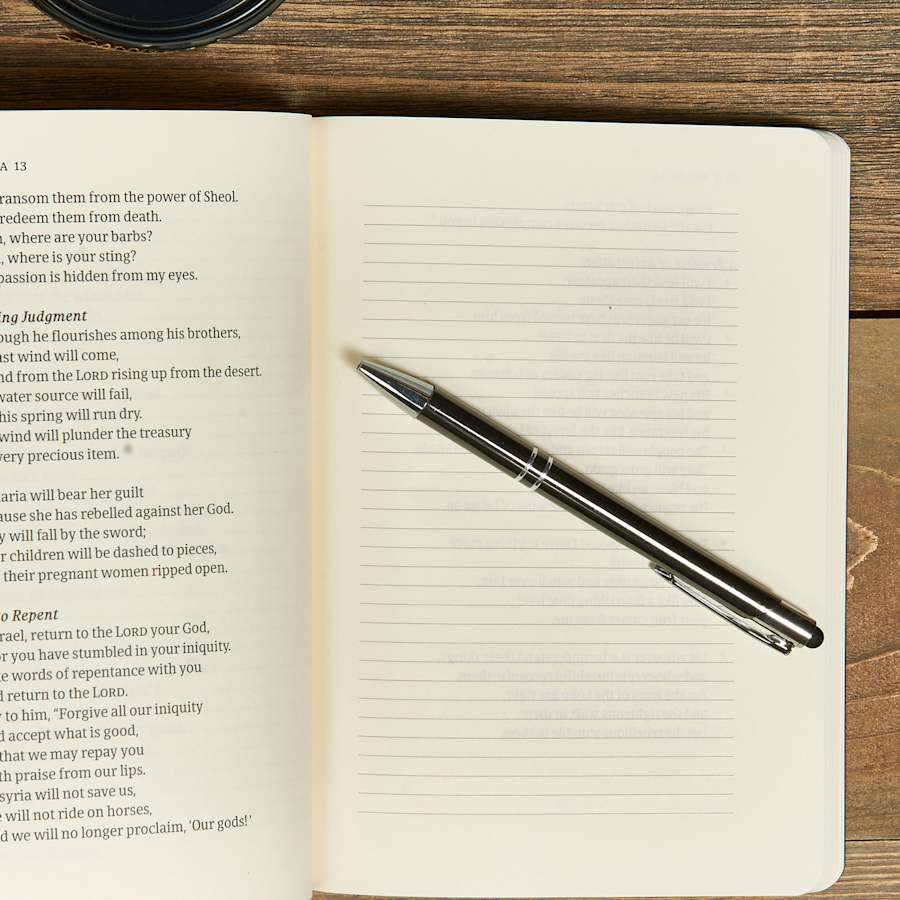 A 13
ransom them from the power of Sheol.
redeem them from death.
, where are your barbs?
, where is your sting?
passion is hidden from my eyes.
ing Judgment
ough he flourishes among his brothers,
ast wind will come,
nd from the LORD rising up from the desert.
water source will fail,
his spring will run dry.
wind will plunder the treasury
very precious item.
aria will bear her guilt
ause she has rebelled against her God.
y will fall by the sword;
r children will be dashed to pieces,
their pregnant women ripped open.
to Repent
rael, return to the LORD your God,
or you have stumbled in your iniquity.
ke words of repentance with you
d return to the LORD.
y to him, “Forgive all our iniquity
d accept what is good,
that we may repay you
th praise from our lips.
syria will not save us,
e will not ride on horses,
d we will no longer proclaim, ‘Our gods!’